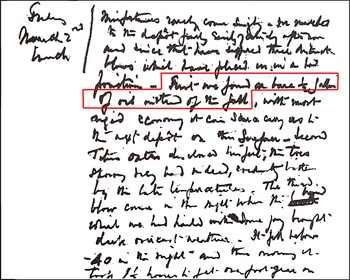 Friday
March 2nd
Lunch
Misfortunes rarely come singly - we marched
to the depot fairly easily yesterday afternoon
and since that have suffered three distinct
blows which have placed us in a bad
position - First we found a bare ½ gallon
of oil instead of the full, with most
rigid economy it can scarce carry us to
the next depot on this surface - Second
Titus Oates disclosed his feet, the toes
showing very bad indeed, evidently bitten
by the late temperatures - The third
blow came in the night when the wind
which we had hailed with some joy brought
dark overcast weather - It fell below
-40 in the night and this morning it
took 1½ hours to get our foot gear on